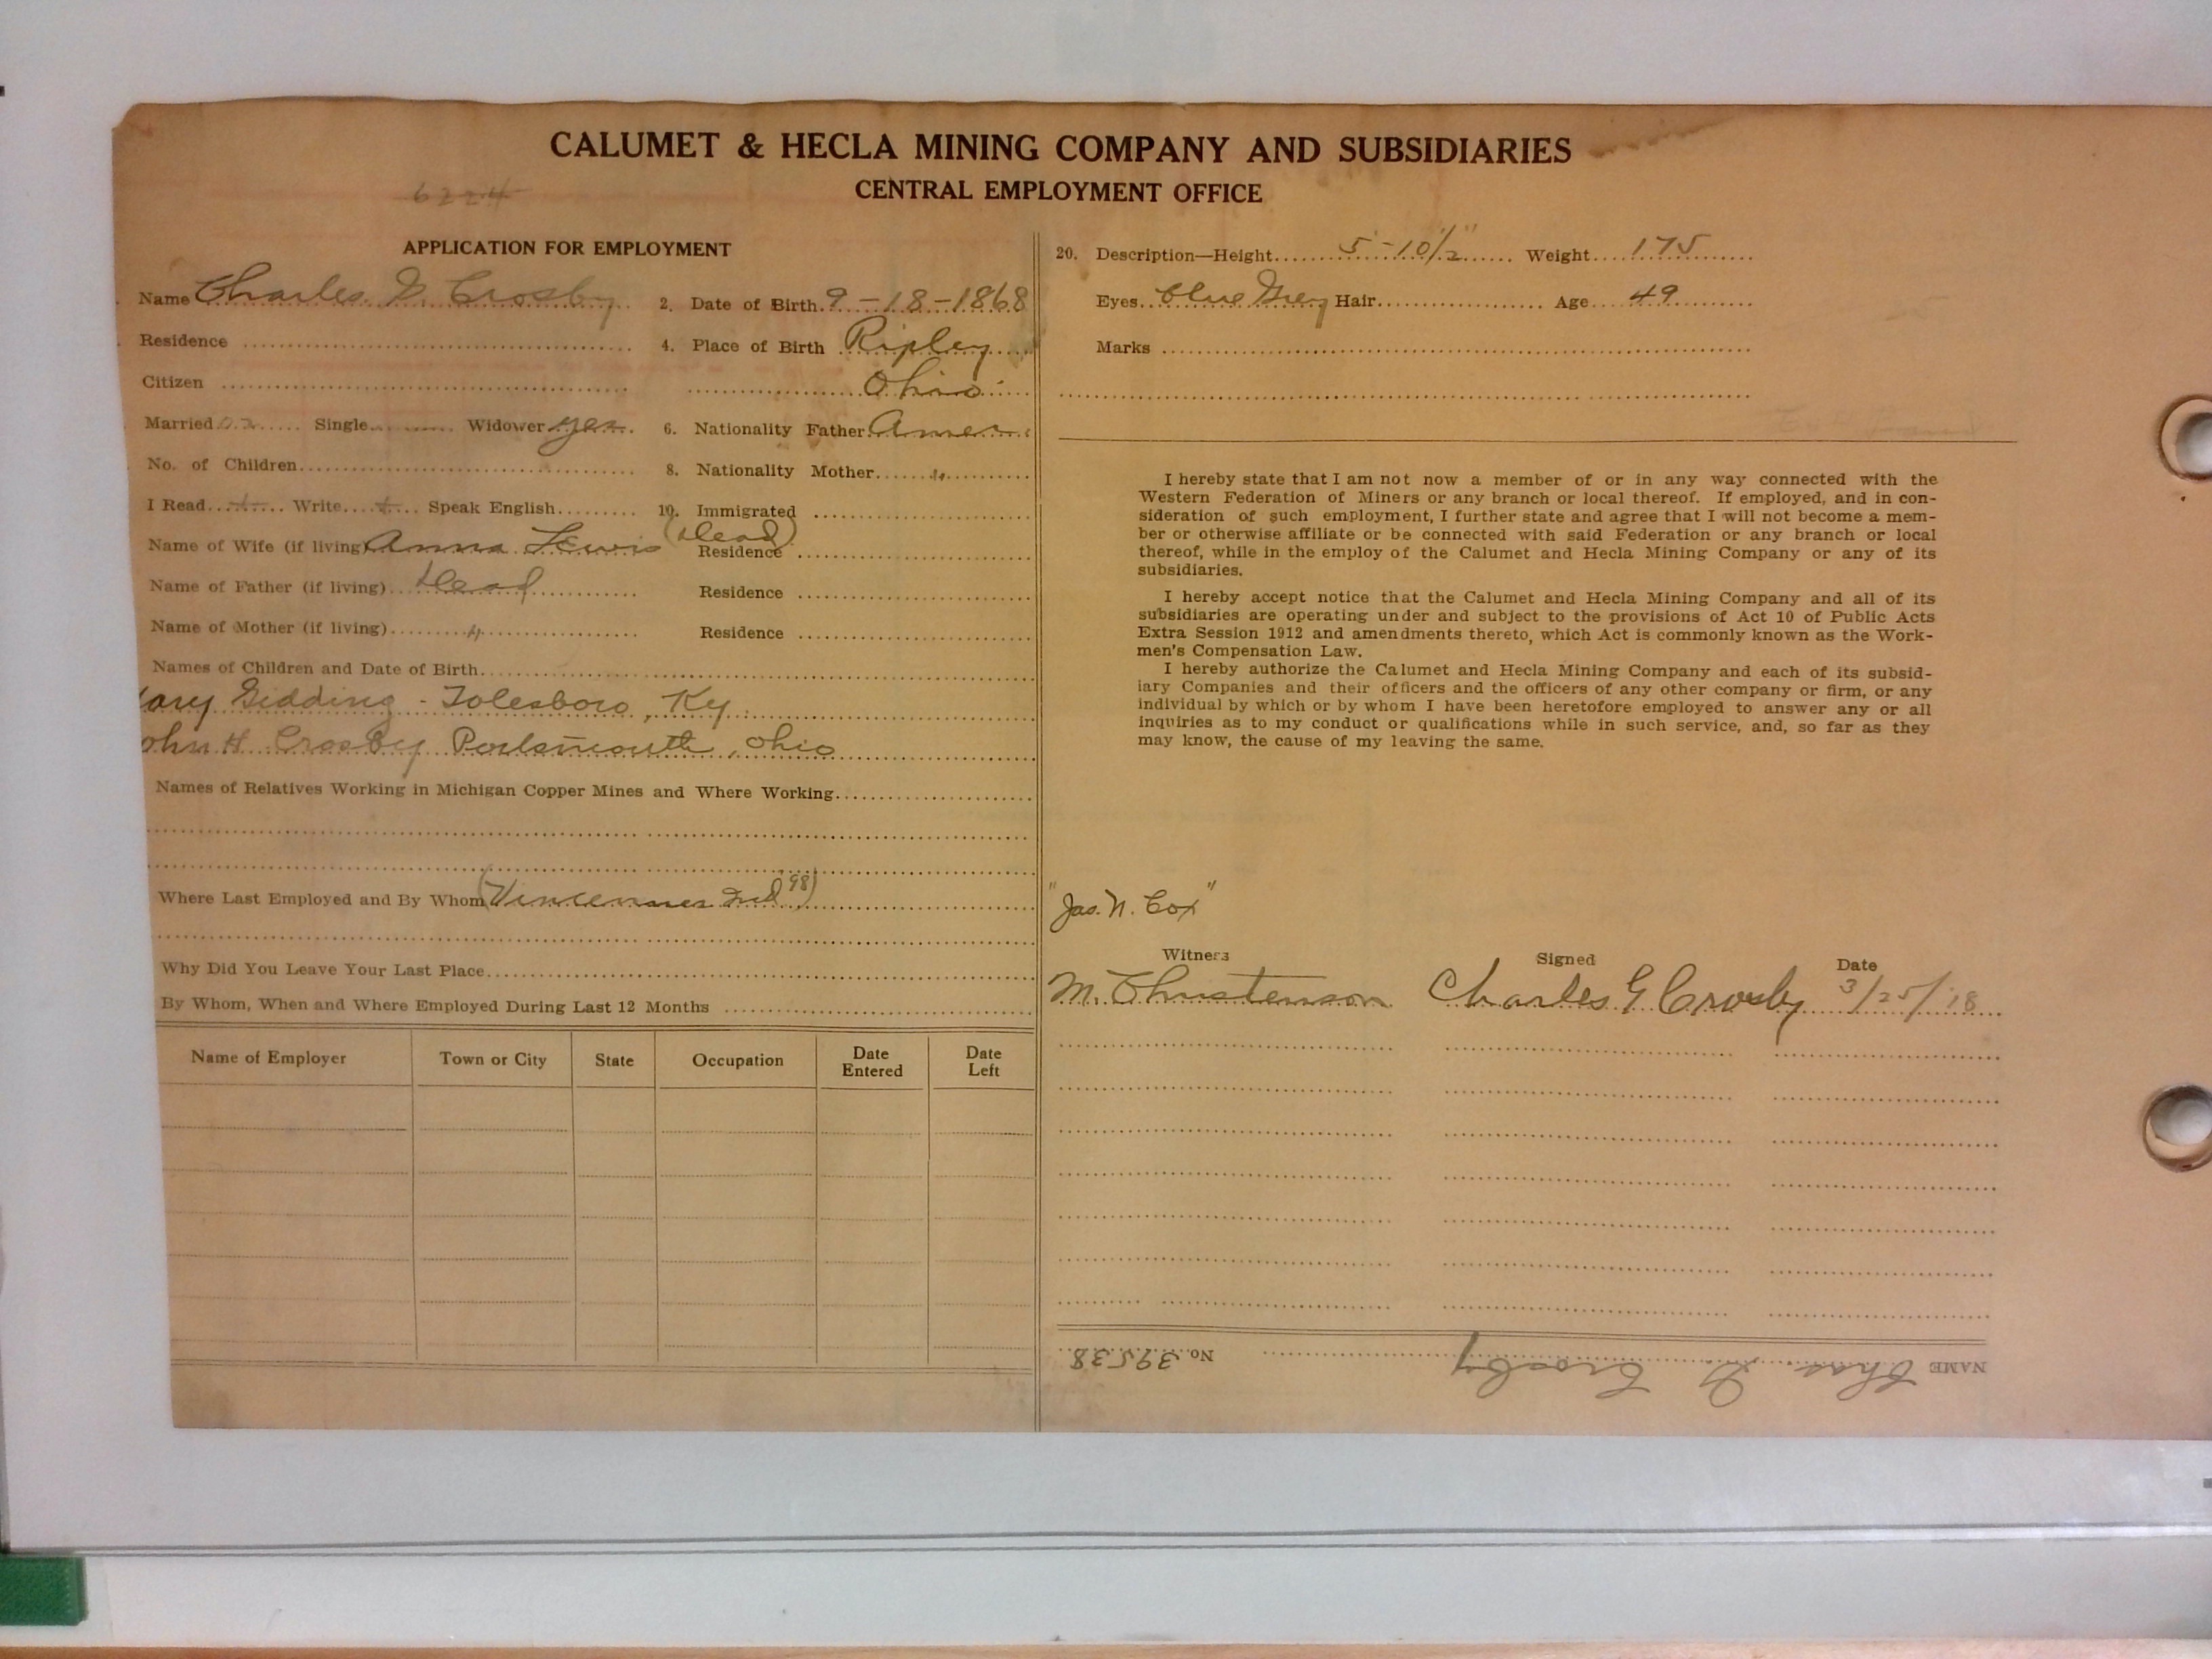 CALUMET & HECLA MINING COMPANY AND SUBSIDIARIES
CENTRAL EMPLOYMENT OFFICE
6224
APPLICATION FOR EMPLOYMENT
Name Charles G. Crosby 2. Date of Birth 9-18-1868
Residence 4. Place of Birth Ripley
Citizen Ohio
Married Single Widower yes 6. Nationality Father Amer
No. of Children 8. Nationality Mother "
I Read + Write + Speak English 10. Immigrated
Name of Wife (if living) Anna Lewis (Dead) Residence
Name of Father (if living) Dead Residence
Name of Mother (if living) " Residence
Names of Children and Date of Birth
ary Gidding - Tolesboro, Ky.
ohn H. Crosby Portsmouth, Ohio
Names of Relatives Working in Michigan Copper Mines and Where Working
Where Last Employed and By Whom (Vincennes Ind 98)
Why Did You Leave Your Last Place
By Whom, When and Where Employed During Last 12 Months
Name of Employer Town or City State Occupation Date Entered Date Left
20. Description—Height 5'-10 1/2" Weight 175
Eyes blue Grey Hair Age 49
Marks
I hereby state that I am not now a member of or in any way connected with the
Western Federation of Miners or any branch or local thereof. If employed, and in con-
sideration of such employment, I further state and agree that I will not become a mem-
ber or otherwise affiliate or be connected with said Federation or any branch or local
thereof, while in the employ of the Calumet and Hecla Mining Company or any of its
subsidiaries.
I hereby accept notice that the Calumet and Hecla Mining Company and all of its
subsidiaries are operating under and subject to the provisions of Act 10 of Public Acts
Extra Session 1912 and amendments thereto, which Act is commonly known as the Work-
men's Compensation Law.
I hereby authorize the Calumet and Hecla Mining Company and each of its subsid-
iary Companies and their officers and the officers of any other company or firm, or any
individual by which or by whom I have been heretofore employed to answer any or all
inquiries as to my conduct or qualifications while in such service, and, so far as they
may know, the cause of my leaving the same.
"Jas. N. Cox"
Witness Signed Date
M. Christenson Charles G Crosby 3/25/18
NAME Chas G Crosby No. 39538